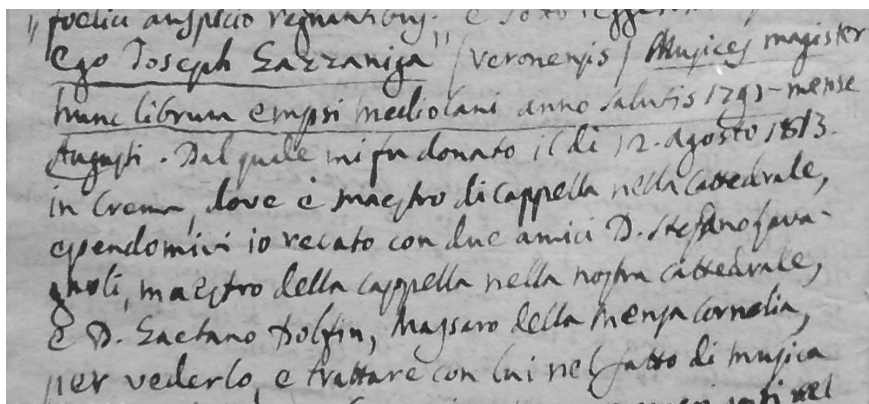 „ foelici auspicio regnantibus. e sotto
Ego Joseph Gazzaniga" / veronensis / Musices magister
hunc librum empsi Mediolani anno salutis 1791 - mense
Augusti. Dal quale mi fu donato il di 12. Agosto 1813.
in Crema, dove è maestro di cappella nella Cattedrale,
essendomivi io recato con due amici D. Stefano Pava-
gnoli, maestro della cappella nella nostra cattedrale,
e D. Gaetano Dolfin, Massaro della Mensa Cornelia,
per vederlo, e trattare con lui nel fatto di musica
nel